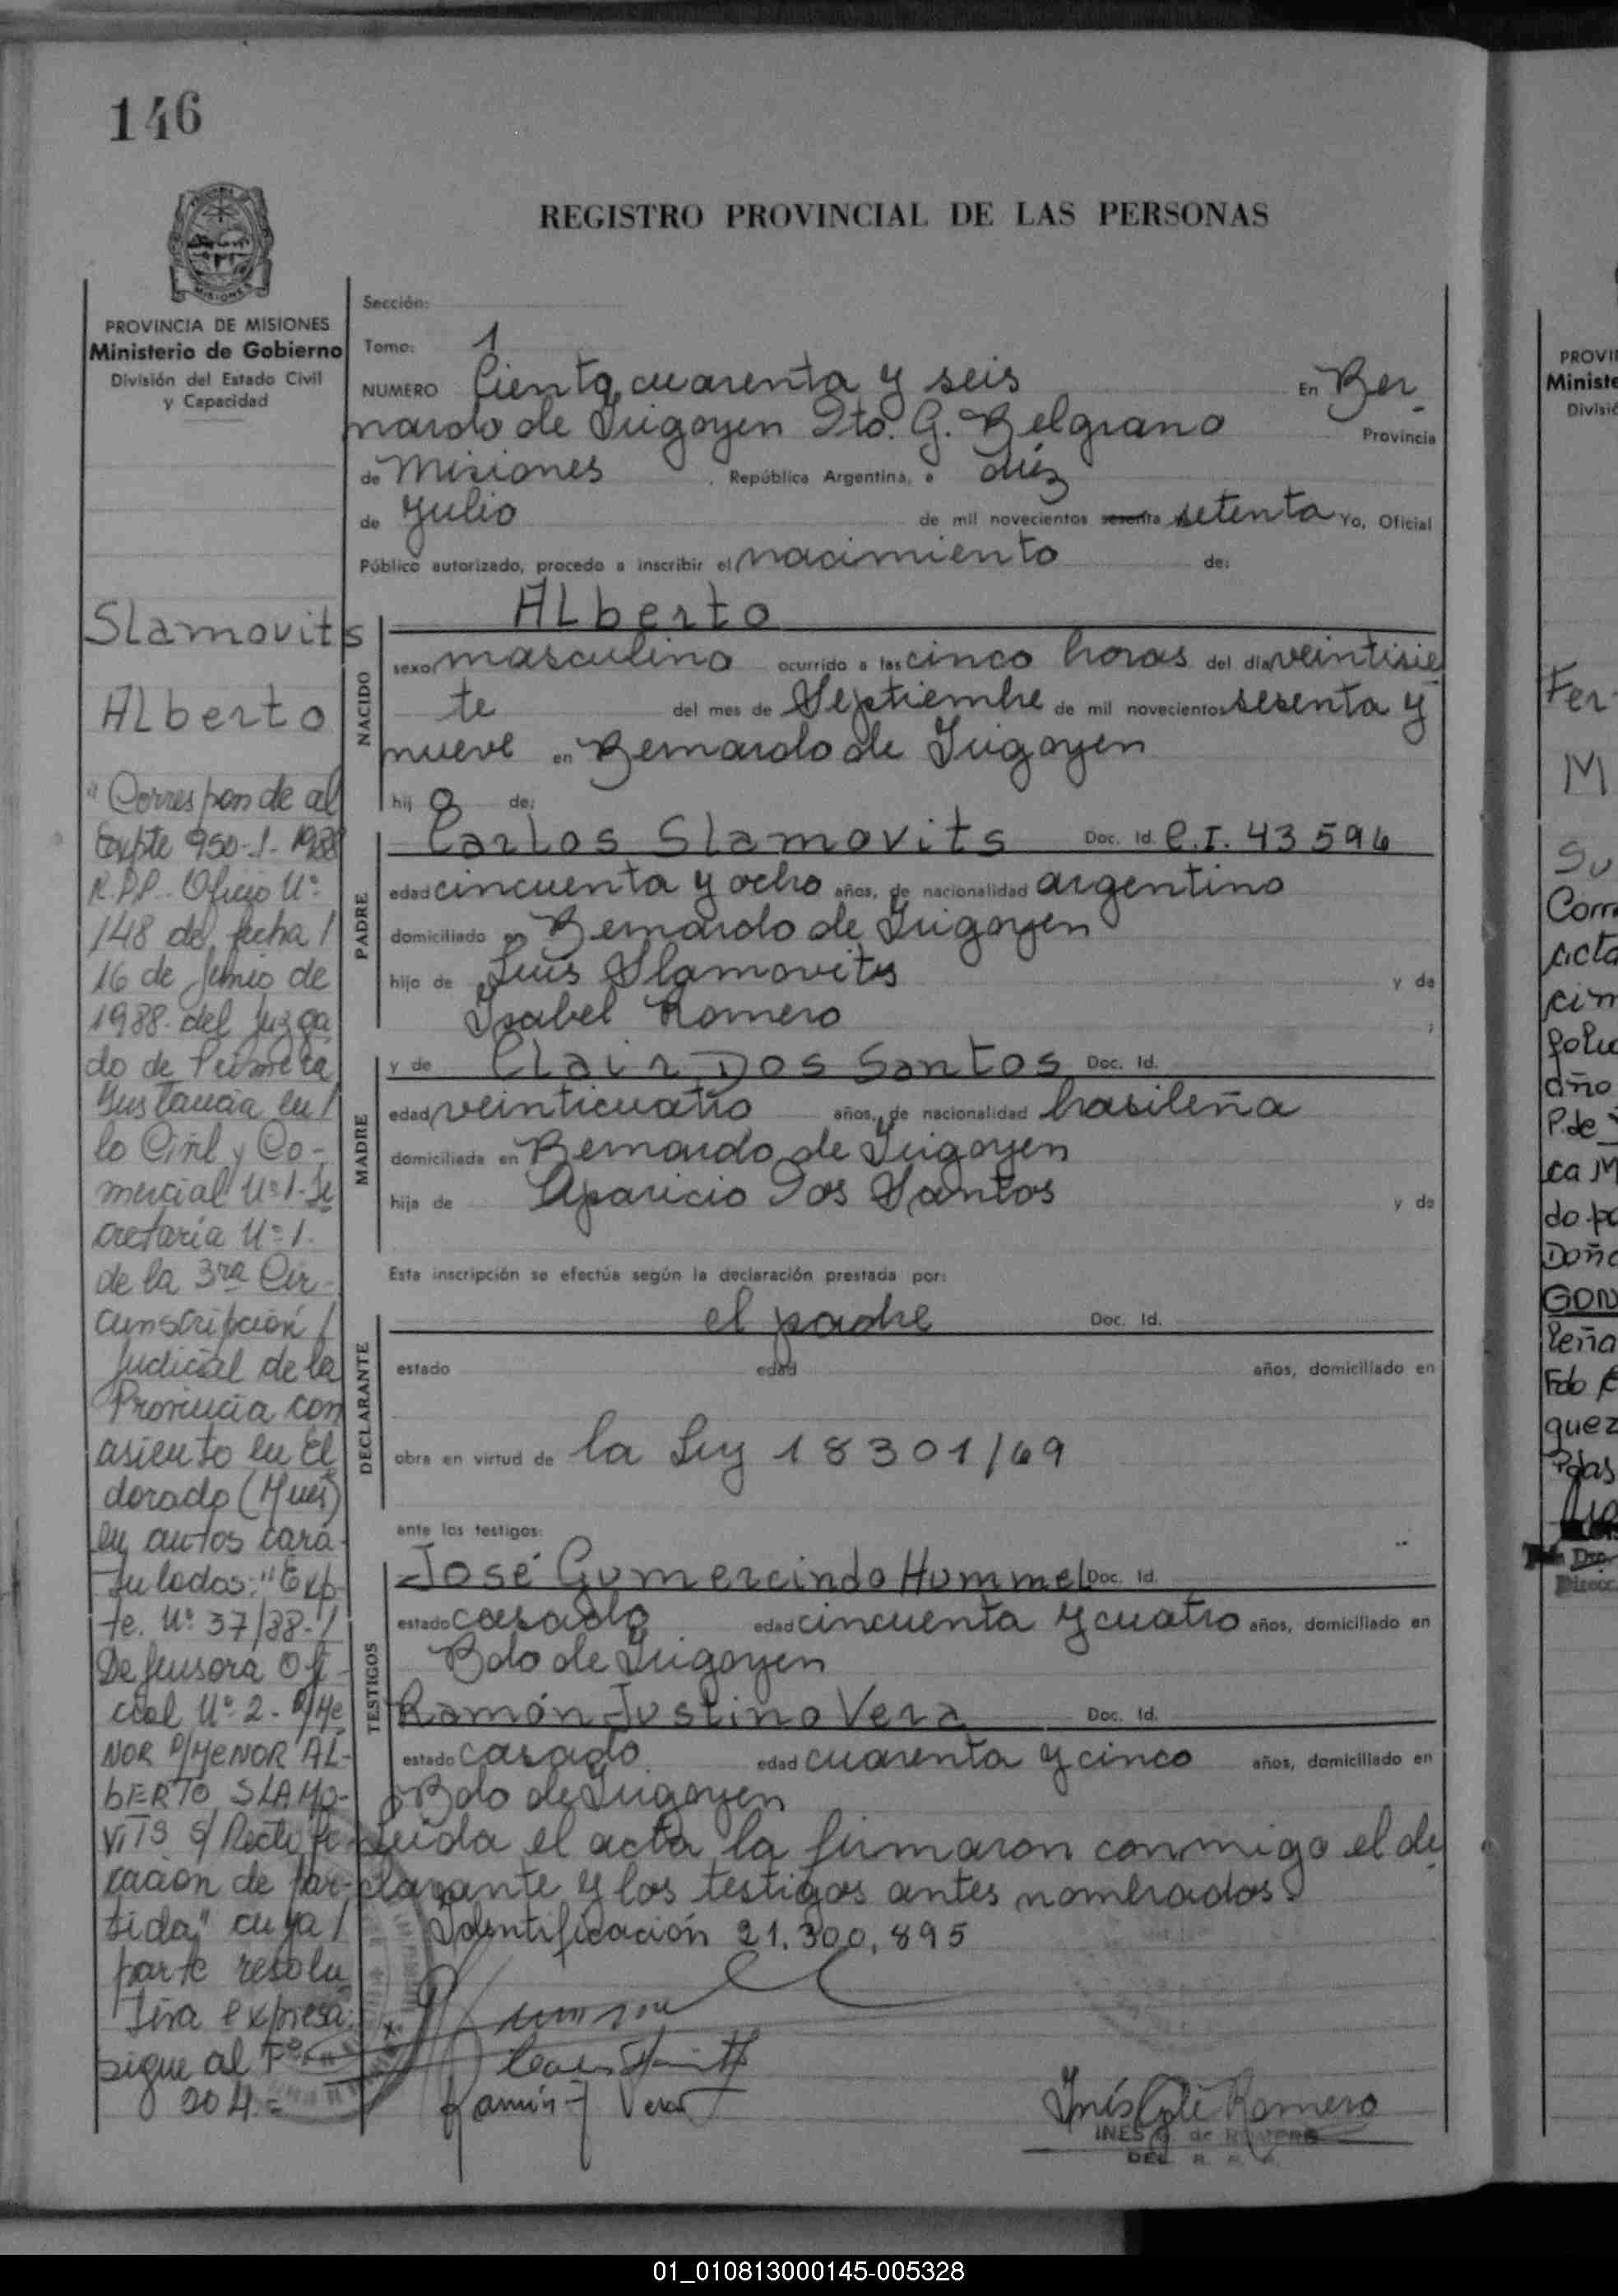 146
REGISTRO PROVINCIAL DE LAS PERSONAS
MISIONES
PROVINCIA DE MISIONES
Ministerio de Gobierno
División del Estado Civil
y Capacidad
Slamovits
Alberto
"Corresponde al
Expte 950-1-1988
R.P.P. Oficio Nº
148 de fecha /
16 de Junio de
1988. del Juzga
do de Primera
Instancia en /
lo Civil y Co-
mercial Nº 1-Se
cretaría Nº 1.
de la 3ra Cir-
cunscripción /
Judicial de la
Provincia con
asiento en El
dorado (Mnes)
en autos cara
tulados: "Exp-
te. Nº 37/88-/
Defensora Ofi-
cial Nº 2- P/Me
NOR P/MENOR AL-
BERTO SLAMO-
VITS S/ Rectifi-
cación de par-
tida" cuya /
parte resolu
tiva expresa:
sigue al Fº
204.=
Sección:
Tomo: 1
NUMERO Ciento cuarenta y seis En Ber-
nardo de Irigoyen Dto. G. Belgrano Provincia
de Misiones , República Argentina, a diez
de Julio de mil novecientos sesenta setenta Yo, Oficial
Público autorizado, procedo a inscribir el nacimiento de:
NACIDO
Alberto
sexo masculino ocurrido a las cinco horas del día veintisie
te del mes de Septiembre de mil novecientos sesenta y
nueve en Bernardo de Irigoyen
hij o de:
PADRE
Carlos Slamovits Doc. Id. C.I. 43596
edad cincuenta y ocho años, de nacionalidad argentino
domiciliado en Bernardo de Irigoyen
hijo de Luis Slamovits y de
Isabel Romero ;
MADRE
y de Clair Dos Santos Doc. Id.
edad veinticuatro años, de nacionalidad brasileña
domiciliada en Bernardo de Irigoyen
hija de Aparicio Dos Santos y de
Esta inscripción se efectúa según la declaración prestada por:
DECLARANTE
el padre Doc. Id.
estado edad años, domiciliado en
obra en virtud de la Ley 18301/69
ante los testigos:
TESTIGOS
José Gumercindo Hummel Doc. Id.
estado casado edad cincuenta y cuatro años, domiciliado en
Bdo de Irigoyen
Ramón Justino Vera Doc. Id.
estado casado edad cuarenta y cinco años, domiciliado en
Bdo de Irigoyen
Leida el acta la firmaron conmigo el de
clarante y los testigos antes nombrados.
Identificación 21.300.895
Ramón J Vera
Inés Romero
INES G. de ROMERO
DEL. R. P.
PROVI
Ministe
Divisió
Fer
M
Su
Corr
acta
cim
año
P.de
ca M
do po
Doña
GON
Peña
Fdo
guez
Pdas
Direcc
01_010813000145-005328